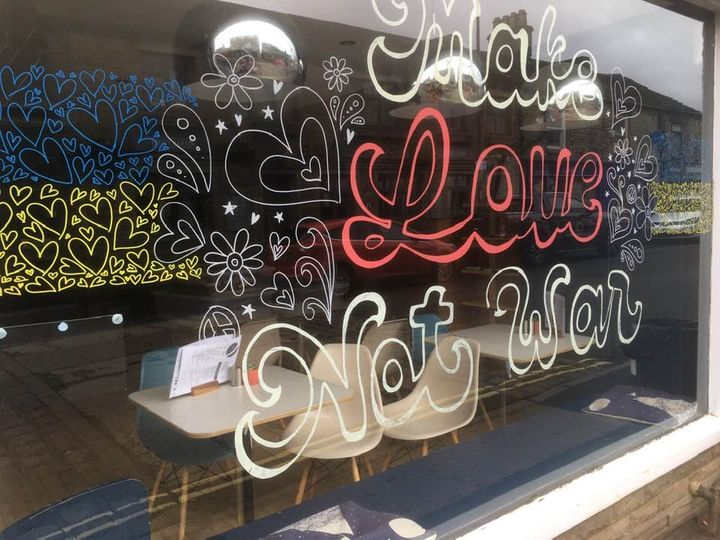 Make
Love
Not War